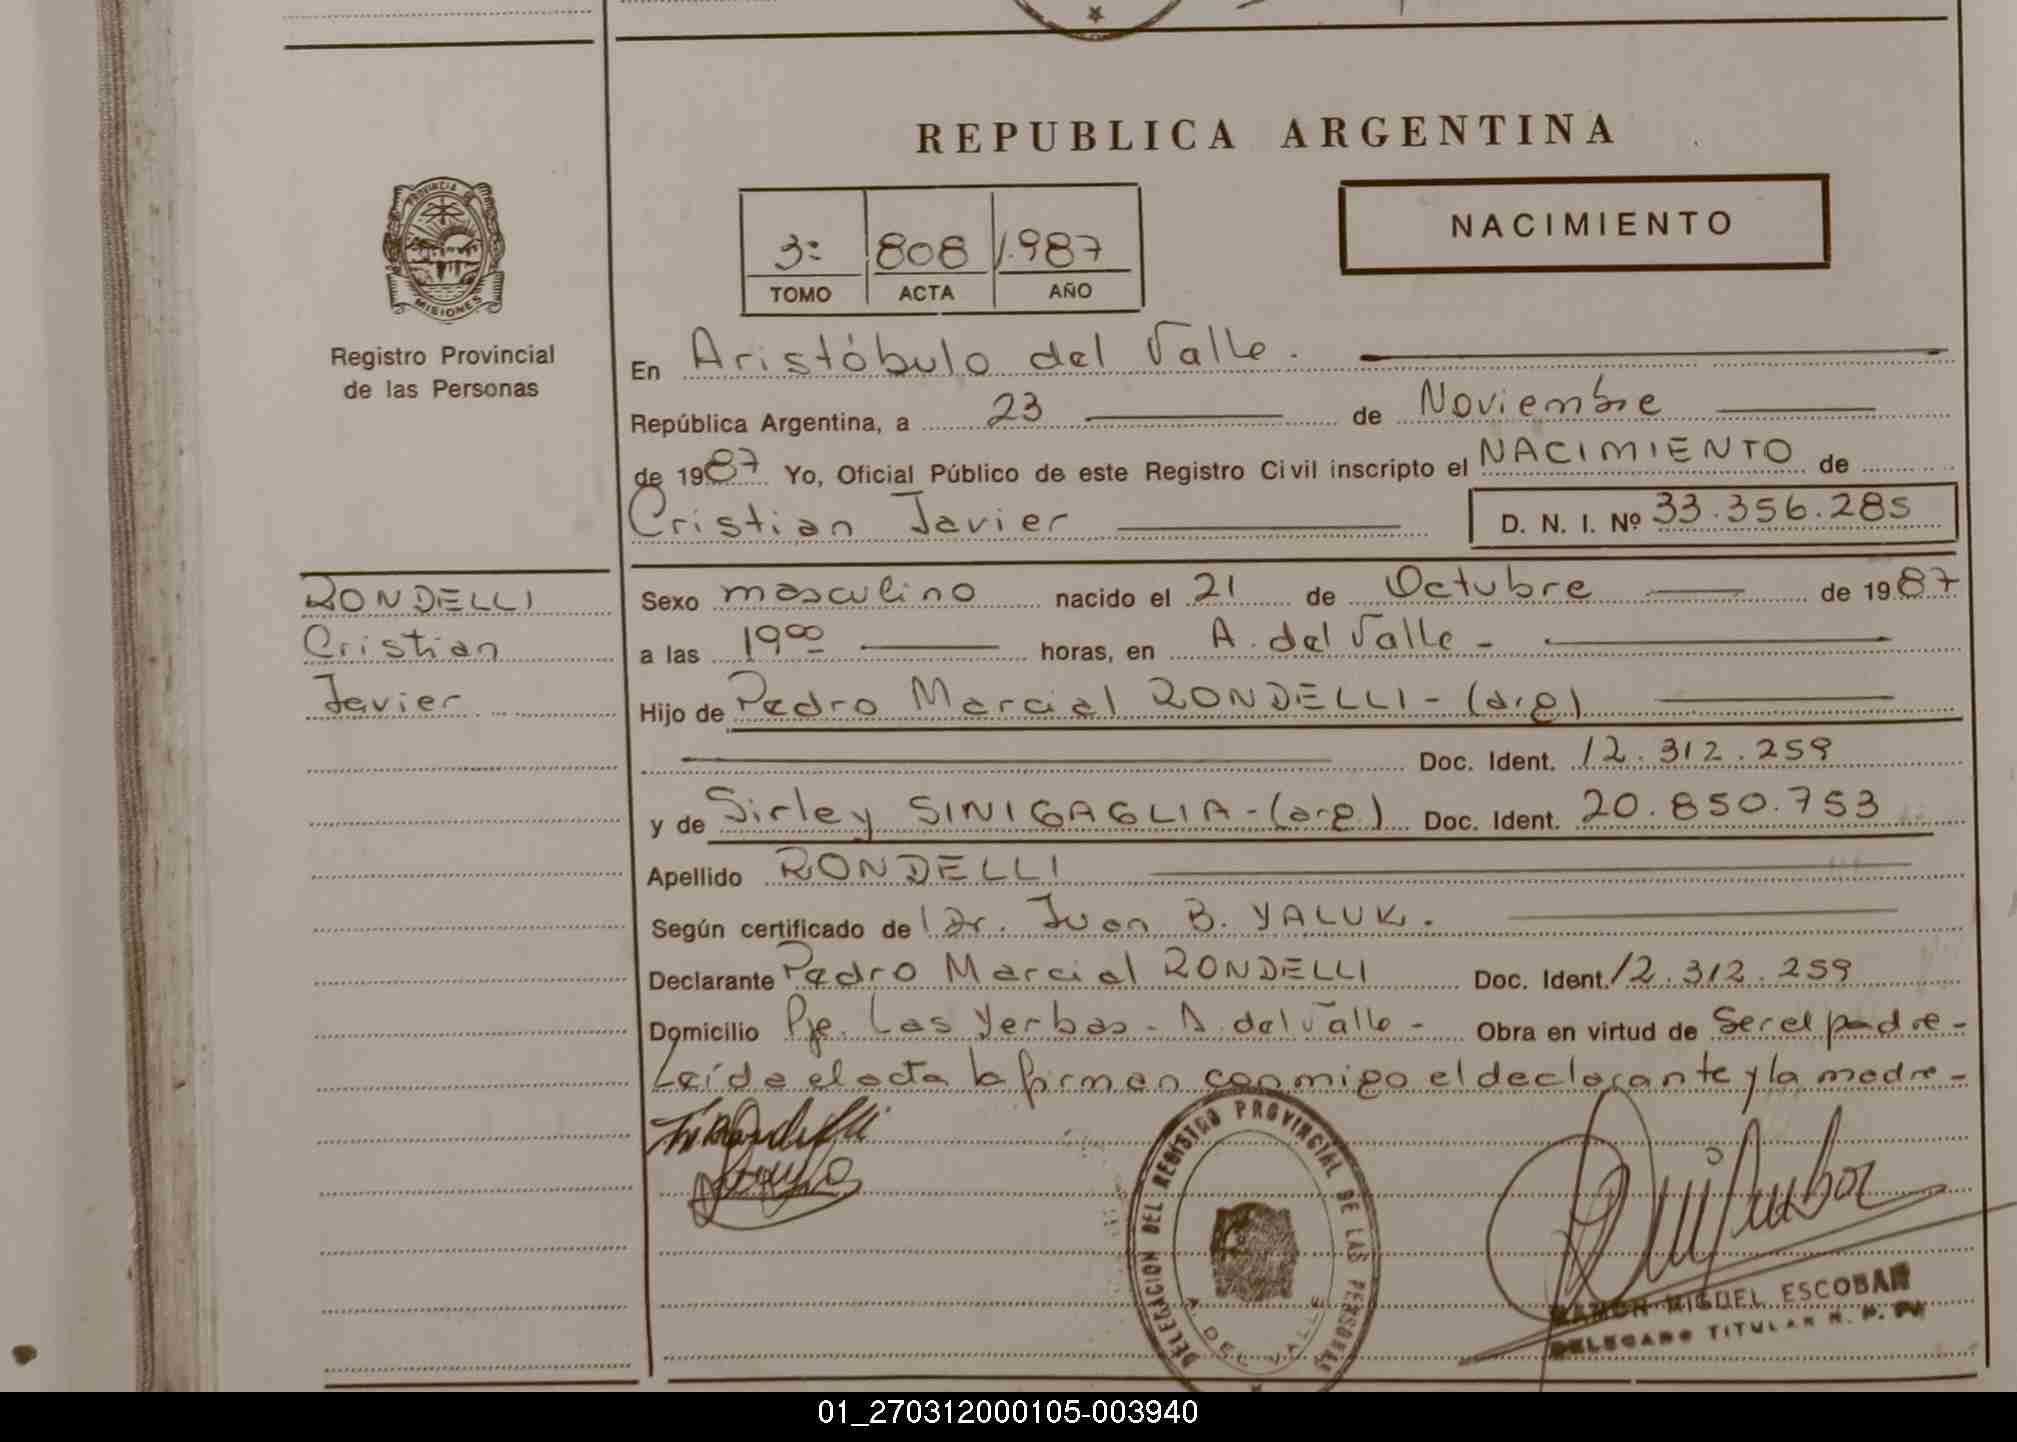 REPUBLICA ARGENTINA
PROVINCIA DE
MISIONES
Registro Provincial
de las Personas
3º 808 1.987
TOMO ACTA AÑO
NACIMIENTO
En Aristóbulo del Valle.
República Argentina, a 23 de Noviembre
de 1987 Yo, Oficial Público de este Registro Civil inscripto el NACIMIENTO de
Cristian Javier D. N. I. Nº 33.356.285
RONDELLI
Cristian
Javier
Sexo masculino nacido el 21 de Octubre de 1987
a las 19 00 horas, en A. del Valle -
Hijo de Pedro Marcial RONDELLI - (arg)
Doc. Ident. 12.312.259
y de Sirley SINIGAGLIA - (arg.) Doc. Ident. 20.850.753
Apellido RONDELLI
Según certificado de Dr. Juan B. YALUK.
Declarante Pedro Marcial RONDELLI Doc. Ident. 12.312.259
Domicilio Pje. Las Yerbas - A. del Valle - Obra en virtud de Ser el padre -
Leída el acta la firman conmigo el declarante y la madre -
DELEGACION DEL REGISTRO PROVINCIAL DE LAS PERSONAS
A. DEL VALLE
RAMON MIGUEL ESCOBAR
DELEGADO TITULAR R. P. P.
01_270312000105-003940